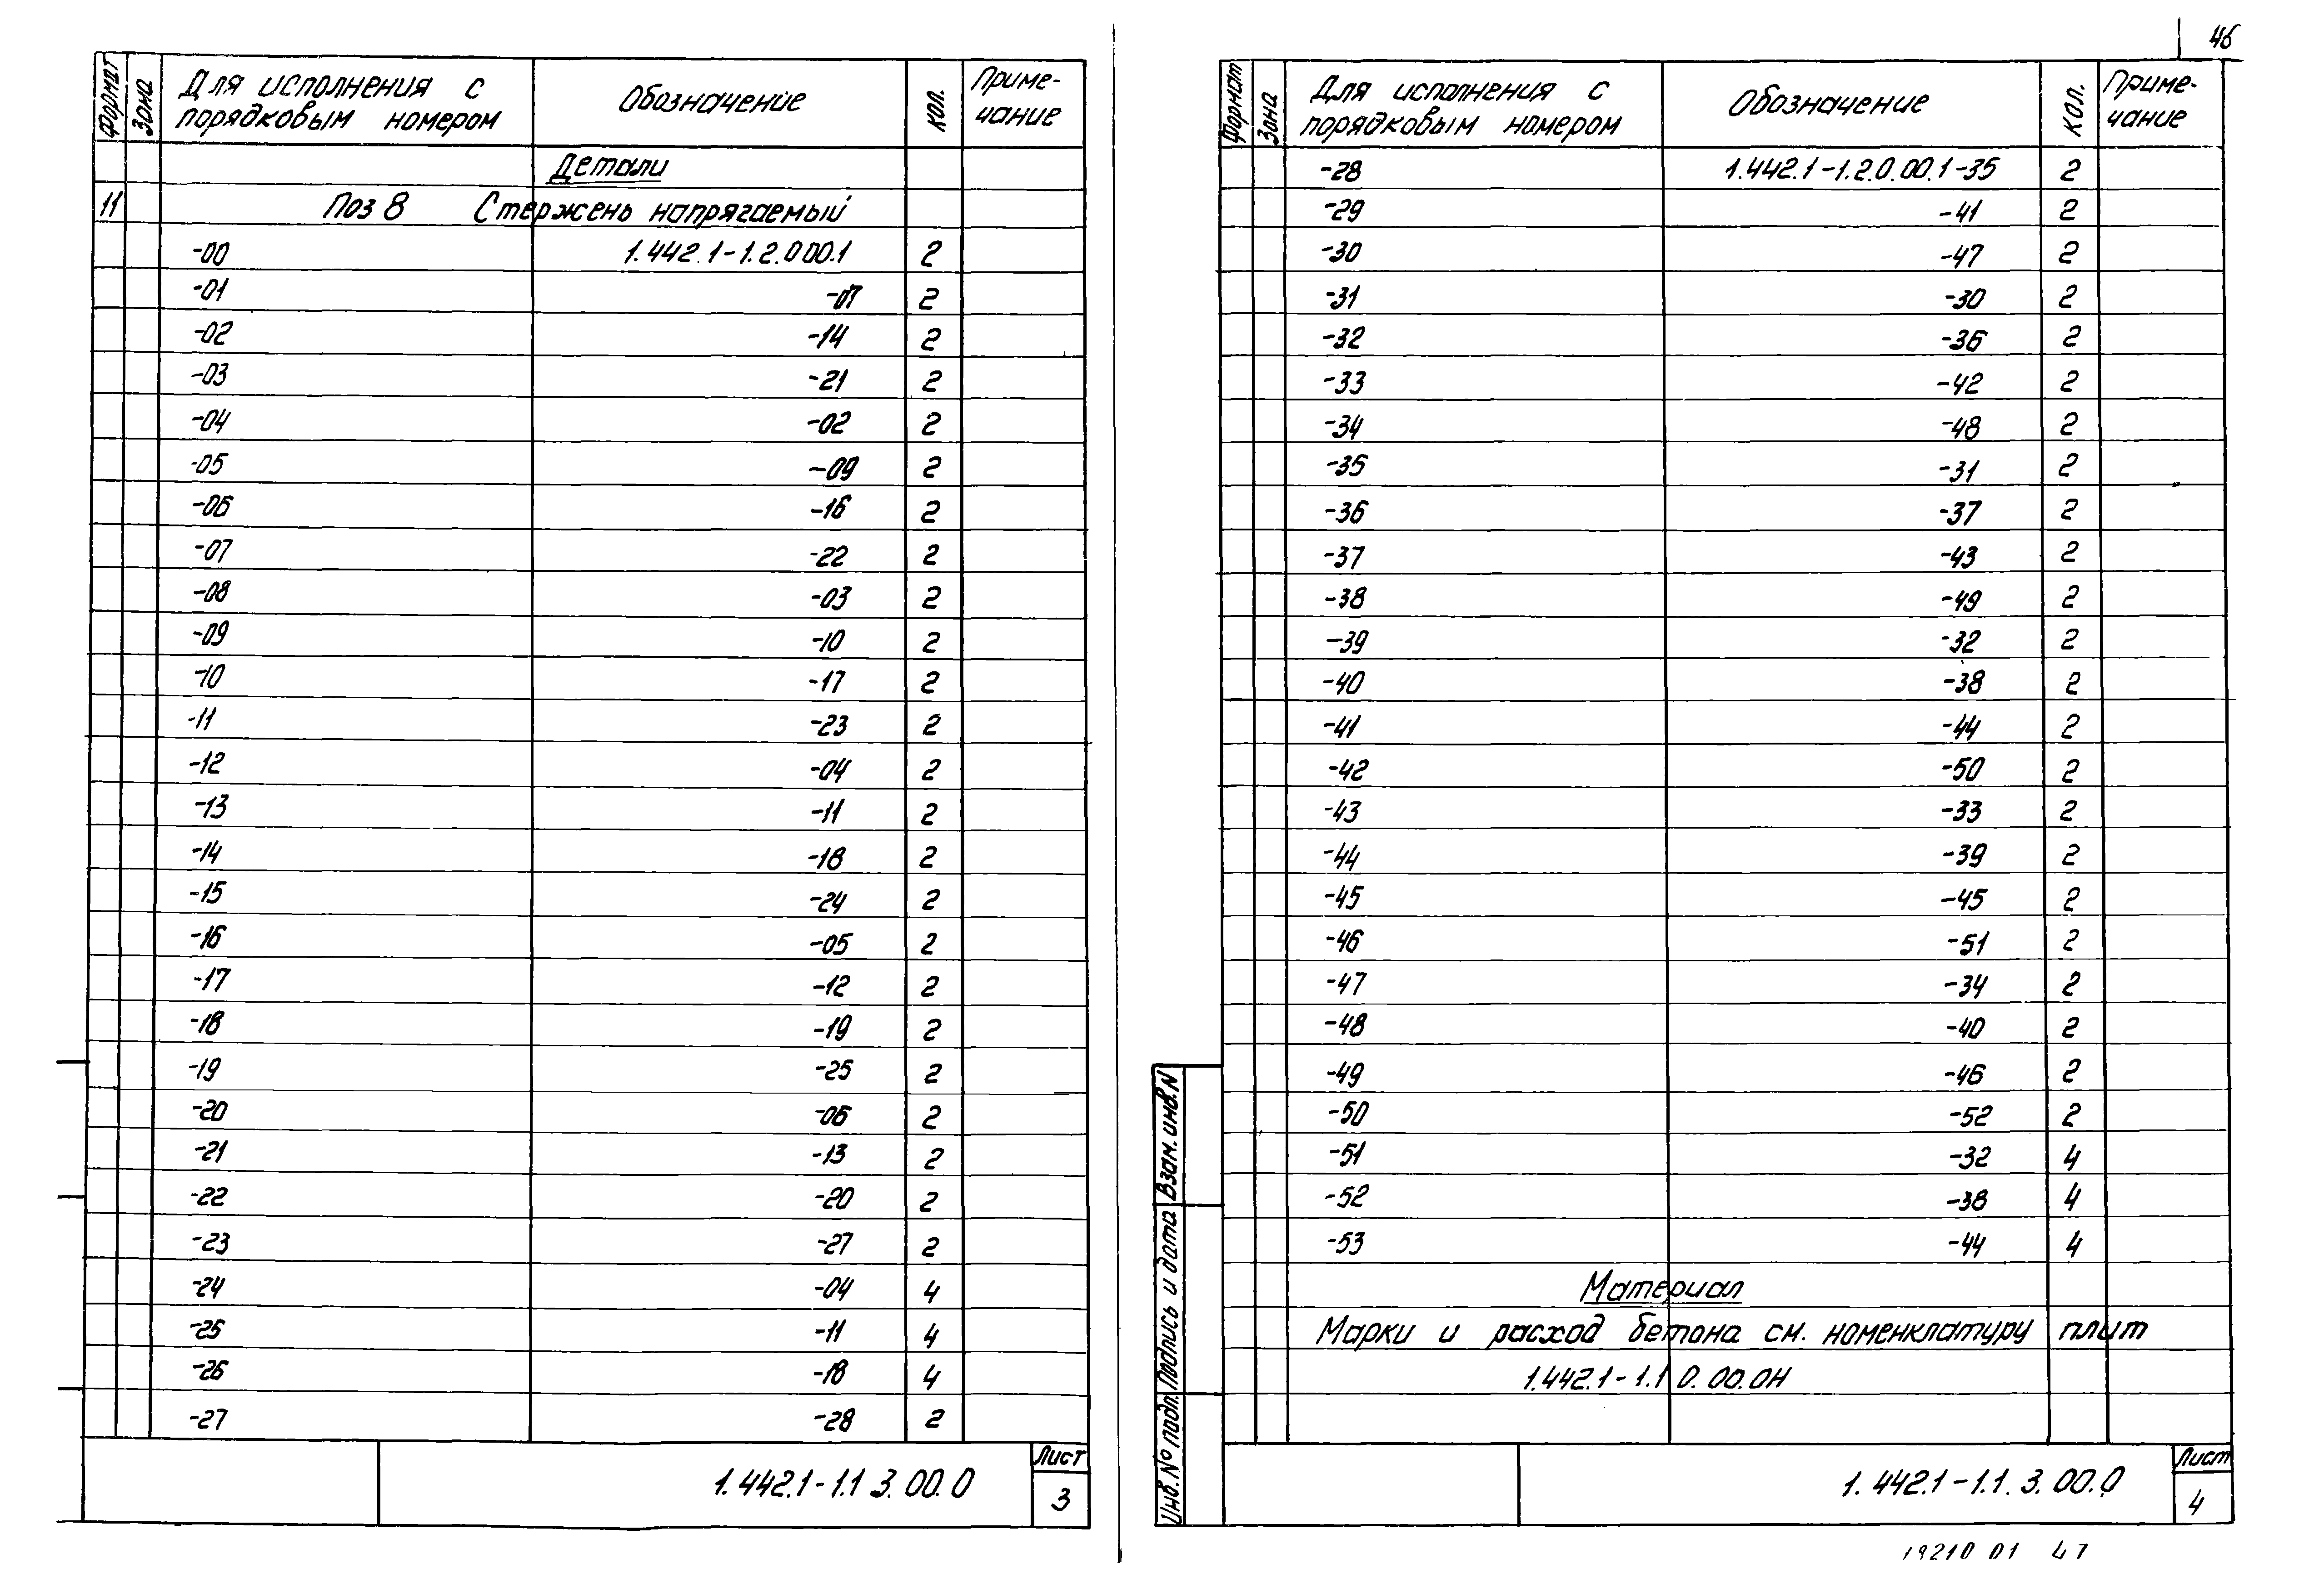 46
Формат Зона Для исполнения с порядковым номером Обозначение Кол. Приме-чание
Детали
11 Поз 8 Стержень напрягаемый
-00 1.442.1-1.2.000.1 2
-01 -07 2
-02 -14 2
-03 -21 2
-04 -02 2
-05 -09 2
-06 -16 2
-07 -22 2
-08 -03 2
-09 -10 2
-10 -17 2
-11 -23 2
-12 -04 2
-13 -11 2
-14 -18 2
-15 -24 2
-16 -05 2
-17 -12 2
-18 -19 2
-19 -25 2
-20 -06 2
-21 -13 2
-22 -20 2
-23 -27 2
-24 -04 4
-25 -11 4
-26 -18 4
-27 -28 2
1.442.1-1.1 3.00.0 Лист
3
Формат Зона Для исполнения с порядковым номером Обозначение Кол. Приме-чание
-28 1.442.1-1.2.0.00.1-35 2
-29 -41 2
-30 -47 2
-31 -30 2
-32 -36 2
-33 -42 2
-34 -48 2
-35 -31 2
-36 -37 2
-37 -43 2
-38 -49 2
-39 -32 2
-40 -38 2
-41 -44 2
-42 -50 2
-43 -33 2
-44 -39 2
-45 -45 2
-46 -51 2
-47 -34 2
-48 -40 2
-49 -46 2
-50 -52 2
-51 -32 4
-52 -38 4
-53 -44 4
Материал
Марки и расход бетона см. номенклатуру плит
1.442.1-1.1 0.00.0Н
Инв. № подл. Подпись и дата Взам. инв. N
1.442.1-1.1.3.00.0 Лист
4
19210 01 47